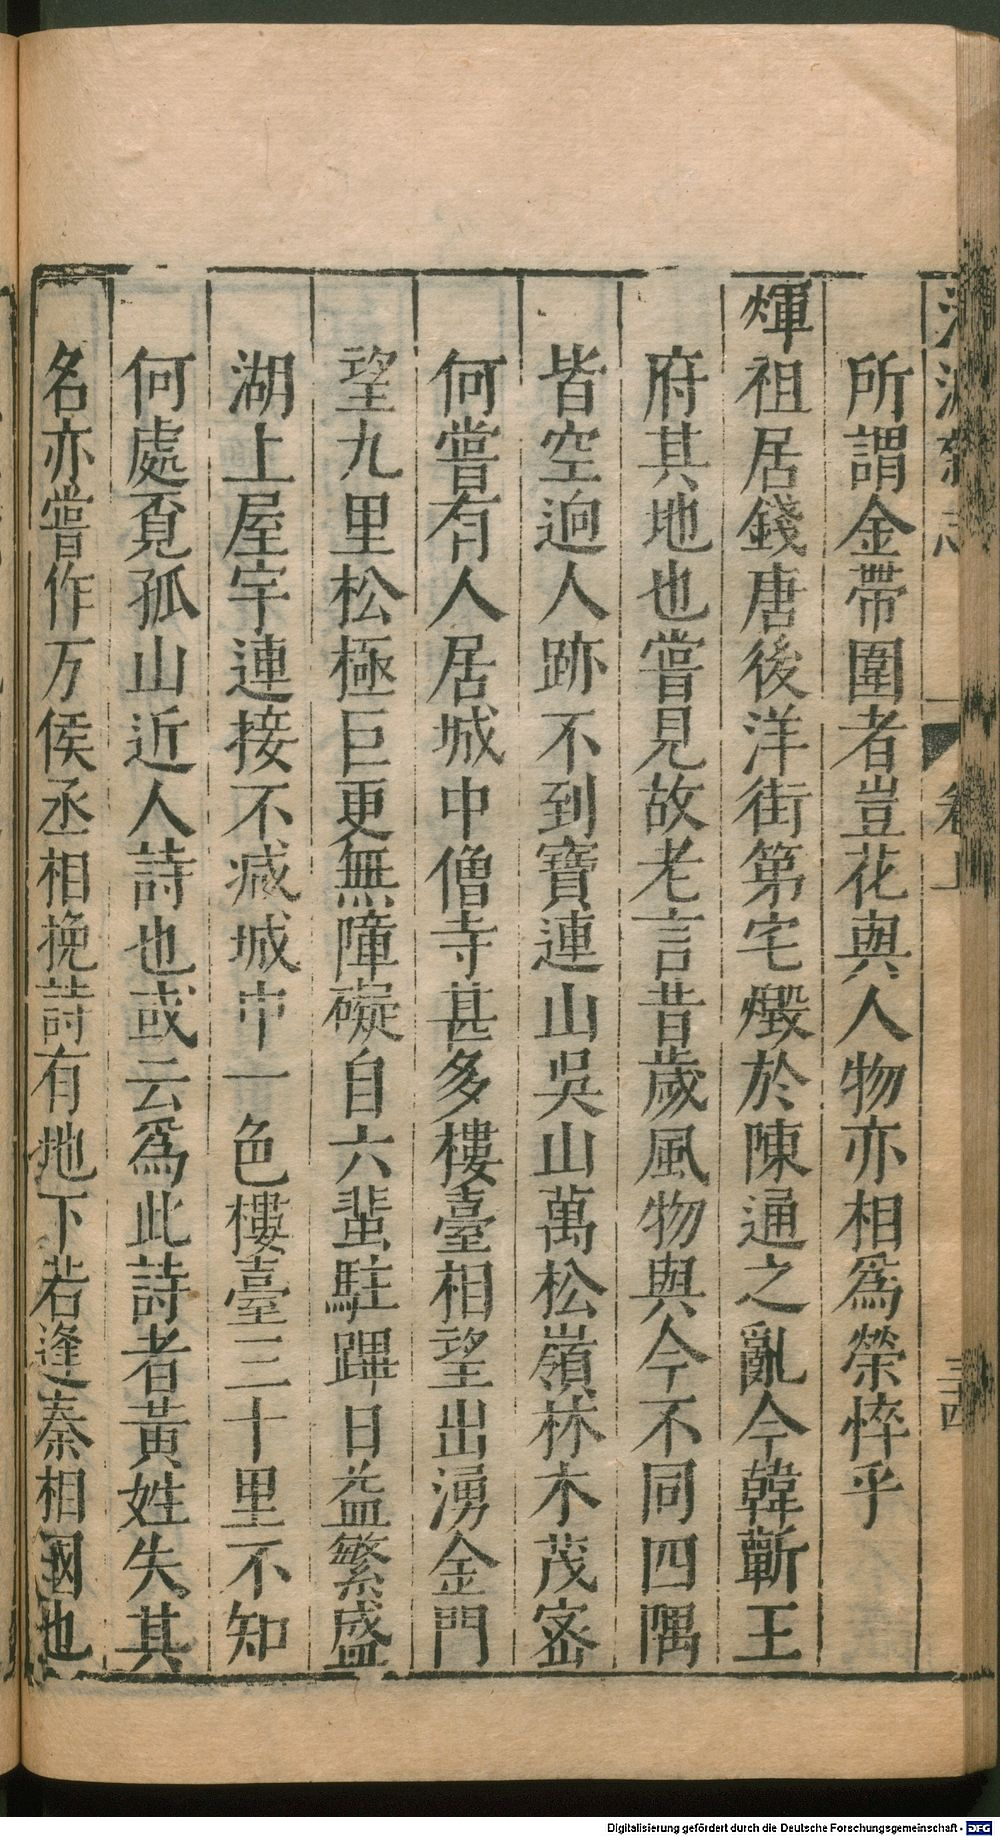 清波雜志
卷上
三四
所謂金帶圍者豈花與人物亦相爲榮悴乎
煇祖居錢唐後洋街第宅燬於陳通之亂今韓蘄王
府其地也嘗見故老言昔歲風物與今不同四隅
皆空迥人跡不到寶蓮山吳山萬松嶺林木茂密
何嘗有人居城中僧寺甚多樓臺相望出湧金門
望九里松極巨更無障礙自六蜚駐蹕日益繁盛
湖上屋宇連接不減城中一色樓臺三十里不知
何處覓孤山近人詩也或云爲此詩者黃姓失其
名亦嘗作万俟丞相挽詩有地下若逢秦相國也
Digitalisierung gefördert durch die Deutsche Forschungsgemeinschaft - DFG